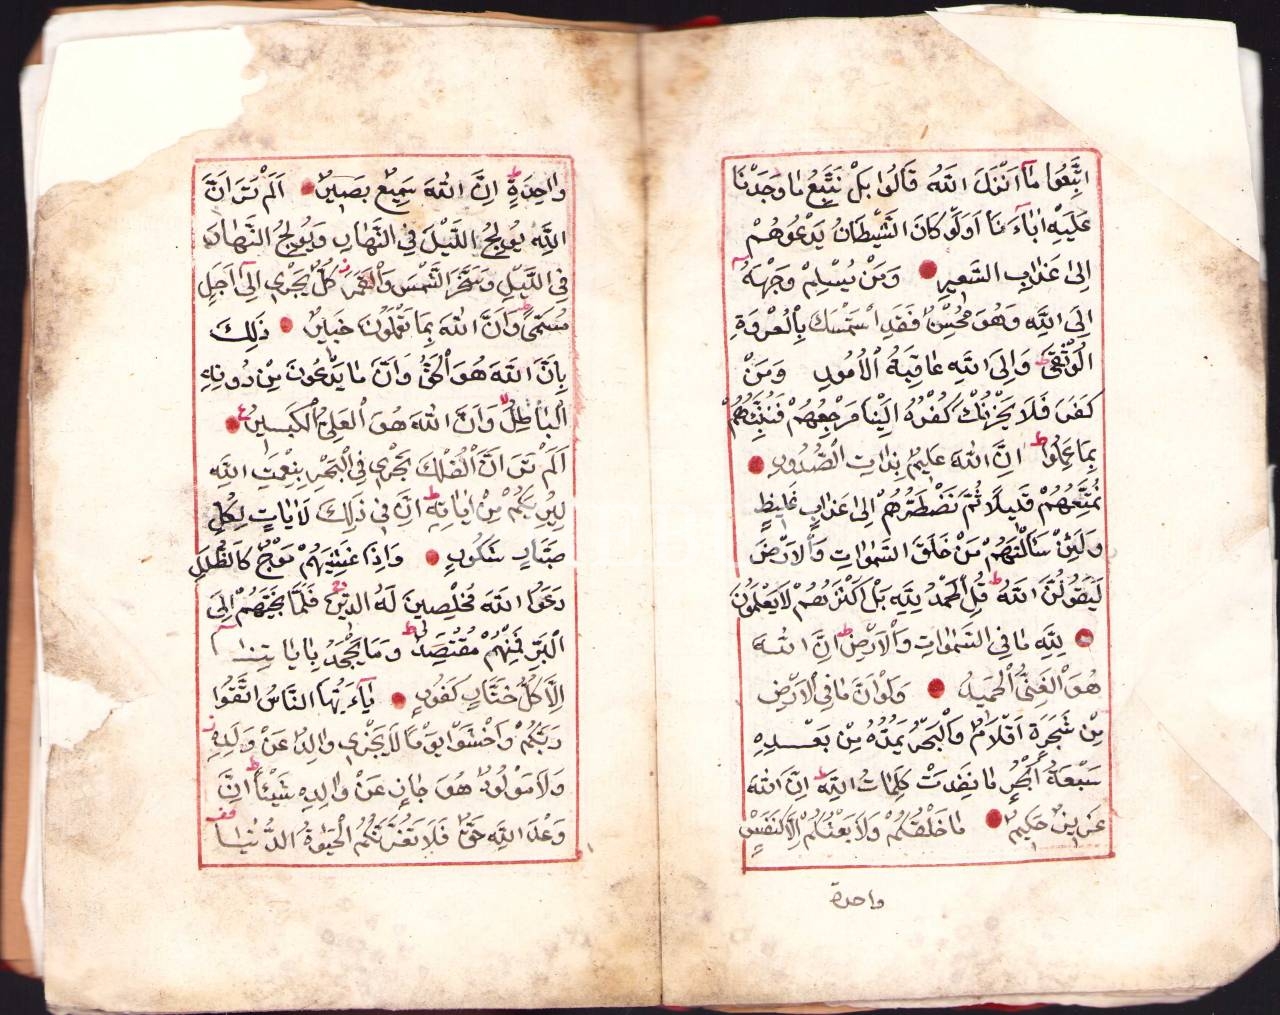 اتَّبِعُوا مَا اَنْزَلَ اللّٰهُ قَالُوا بَلْ نَتَّبِعُ مَا وَجَدْنَا
عَلَيْهِ اٰبَاءَنَا اَوَلَوْ كَانَ الشَّيْطَانُ يَدْعُوهُمْ
اِلٰى عَذَابِ السَّعِيرِ وَمَنْ يُسْلِمْ وَجْهَهُ
اِلَى اللّٰهِ وَهُوَ مُحْسِنٌ فَقَدِ اسْتَمْسَكَ بِالْعُرْوَةِ
الْوُثْقٰى ط وَاِلَى اللّٰهِ عَاقِبَةُ الْاُمُورِ وَمَنْ
كَفَرَ فَلَا يَحْزُنْكَ كُفْرُهُ اِلَيْنَا مَرْجِعُهُمْ فَنُنَبِّئُهُمْ
بِمَا عَمِلُوا ط اِنَّ اللّٰهَ عَلِيمٌ بِذَاتِ الصُّدُورِ
نُمَتِّعُهُمْ قَلِيلًا ثُمَّ نَضْطَرُّهُمْ اِلٰى عَذَابٍ غَلِيظٍ
وَلَئِنْ سَاَلْتَهُمْ مَنْ خَلَقَ السَّمٰوَاتِ وَالْاَرْضَ
لَيَقُولُنَّ اللّٰهُ ط قُلِ الْحَمْدُ لِلّٰهِ بَلْ اَكْثَرُهُمْ لَا يَعْلَمُونَ
لِلّٰهِ مَا فِي السَّمٰوَاتِ وَالْاَرْضِ ط اِنَّ اللّٰهَ
هُوَ الْغَنِيُّ الْحَمِيدُ وَلَوْ اَنَّ مَا فِي الْاَرْضِ
مِنْ شَجَرَةٍ اَقْلَامٌ وَالْبَحْرُ يَمُدُّهُ مِنْ بَعْدِهِ
سَبْعَةُ اَبْحُرٍ مَا نَفِدَتْ كَلِمَاتُ اللّٰهِ ط اِنَّ اللّٰهَ
عَزِيزٌ حَكِيمٌ مَا خَلْقُكُمْ وَلَا بَعْثُكُمْ اِلَّا كَنَفْسٍ
واحدة
وَاحِدَةٍ ط اِنَّ اللّٰهَ سَمِيعٌ بَصِيرٌ اَلَمْ تَرَ اَنَّ
اللّٰهَ يُولِجُ اللَّيْلَ فِي النَّهَارِ وَيُولِجُ النَّهَارَ
فِي اللَّيْلِ وَسَخَّرَ الشَّمْسَ وَالْقَمَرَ ز كُلٌّ يَجْرِي اِلٰى اَجَلٍ
مُسَمًّى ط وَاَنَّ اللّٰهَ بِمَا تَعْمَلُونَ خَبِيرٌ ذٰلِكَ
بِاَنَّ اللّٰهَ هُوَ الْحَقُّ وَاَنَّ مَا يَدْعُونَ مِنْ دُونِهِ
الْبَاطِلُ لا وَاَنَّ اللّٰهَ هُوَ الْعَلِيُّ الْكَبِيرُ ع
اَلَمْ تَرَ اَنَّ الْفُلْكَ تَجْرِي فِي الْبَحْرِ بِنِعْمَتِ اللّٰهِ
لِيُرِيَكُمْ مِنْ اٰيَاتِهِ ط اِنَّ فِي ذٰلِكَ لَاٰيَاتٍ لِكُلِّ
صَبَّارٍ شَكُورٍ وَاِذَا غَشِيَهُمْ مَوْجٌ كَالظُّلَلِ
دَعَوُا اللّٰهَ مُخْلِصِينَ لَهُ الدِّينَ فَلَمَّا نَجّٰيهُمْ اِلَى
الْبَرِّ فَمِنْهُمْ مُقْتَصِدٌ ط وَمَا يَجْحَدُ بِاٰيَاتِنَا
اِلَّا كُلُّ خَتَّارٍ كَفُورٍ يَاءَيُّهَا النَّاسُ اتَّقُوا
رَبَّكُمْ وَاخْشَوْا يَوْمًا لَا يَجْزِي وَالِدٌ عَنْ وَلَدِهِ ز
وَلَا مَوْلُودٌ هُوَ جَازٍ عَنْ وَالِدِهِ شَيْئًا ط اِنَّ
وَعْدَ اللّٰهِ حَقٌّ فَلَا تَغُرَّنَّكُمُ الْحَيٰوةُ الدُّنْيَا قف